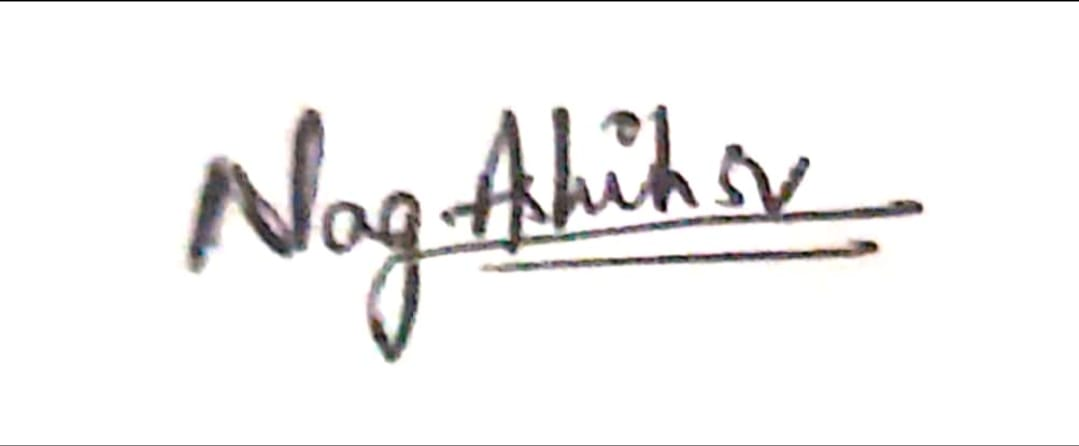 Nag Ashihsv